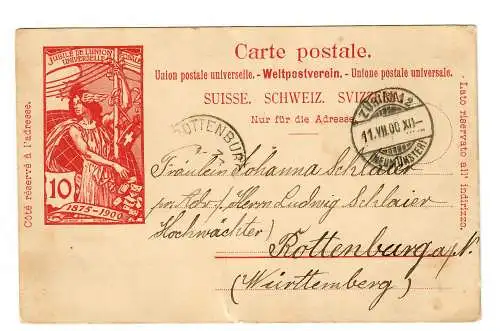 JUBILÉ DE L'UNION
UNIVERSELLE POSTALE
10
1875-1900
Côté réservé à l'adresse.
Carte postale.
Union postale universelle. - Weltpostverein. - Unione postale universale.
SUISSE. SCHWEIZ. SVIZZERA.
Nur für die Adresse.
Lato riservato all' indirizzo.
ZÜRICH 12
11.VII.00 XII
(NEUMÜNSTER)
ROTTENBURG
Fräulein Johanna Schlaier
pr. Adr. / Herrn Ludwig Schlaier
Hochwächter)
Rottenburg a/N.
(Württemberg)